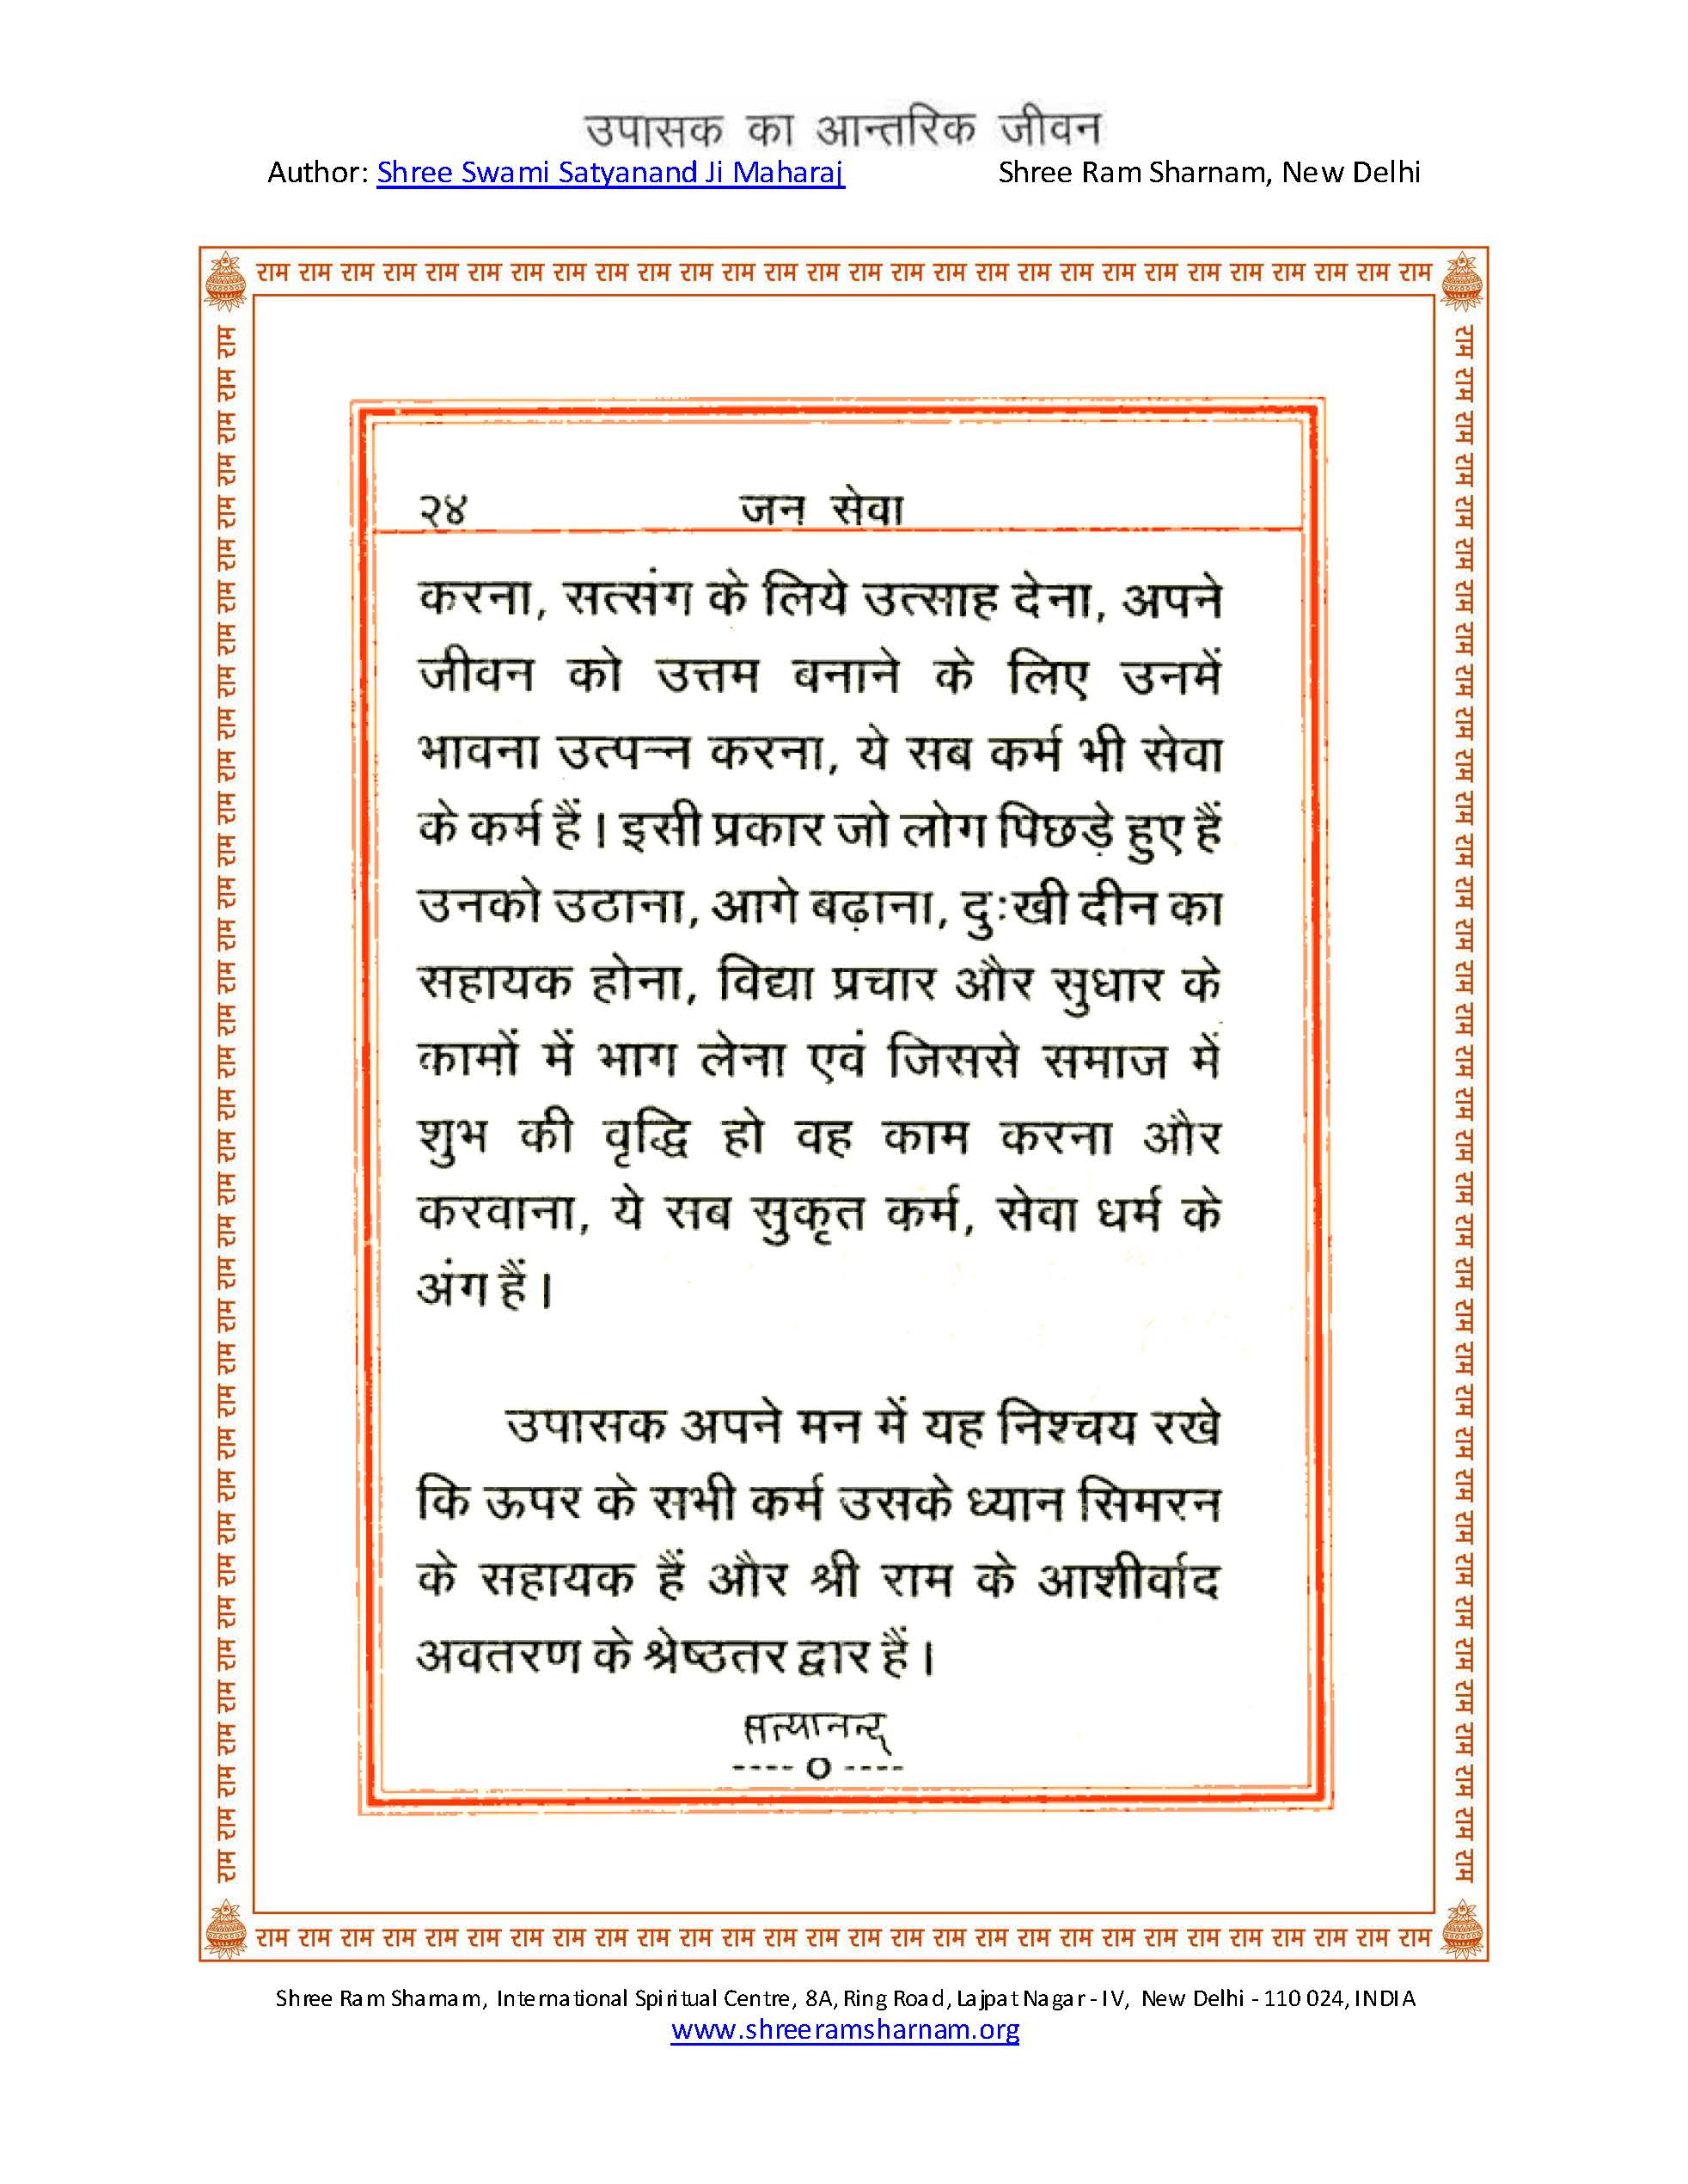 उपासक का आन्तरिक जीवन
Author: Shree Swami Satyanand Ji Maharaj Shree Ram Sharnam, New Delhi
राम राम राम राम राम राम राम राम राम राम राम राम राम राम राम राम राम राम राम राम राम राम राम राम राम राम राम राम
२४ जन सेवा
करना, सत्संग के लिये उत्साह देना, अपने
जीवन को उत्तम बनाने के लिए उनमें
भावना उत्पन्न करना, ये सब कर्म भी सेवा
के कर्म हैं। इसी प्रकार जो लोग पिछड़े हुए हैं
उनको उठाना, आगे बढ़ाना, दुःखी दीन का
सहायक होना, विद्या प्रचार और सुधार के
कामों में भाग लेना एवं जिससे समाज में
शुभ की वृद्धि हो वह काम करना और
करवाना, ये सब सुकृत कर्म, सेवा धर्म के
अंग हैं।
उपासक अपने मन में यह निश्चय रखे
कि ऊपर के सभी कर्म उसके ध्यान सिमरन
के सहायक हैं और श्री राम के आशीर्वाद
अवतरण के श्रेष्ठतर द्वार हैं।
सत्यानन्द्
---- ० ----
राम राम राम राम राम राम राम राम राम राम राम राम राम राम राम राम राम राम राम राम राम राम राम राम राम राम राम राम
राम राम राम राम राम राम राम राम राम राम राम राम राम राम राम राम राम राम राम राम राम राम राम राम राम राम राम राम राम राम राम राम राम राम राम राम राम
राम राम राम राम राम राम राम राम राम राम राम राम राम राम राम राम राम राम राम राम राम राम राम राम राम राम राम राम राम राम राम राम राम राम राम राम राम
Shree Ram Sharnam, International Spiritual Centre, 8A, Ring Road, Lajpat Nagar - IV, New Delhi - 110 024, INDIA
www.shreeramsharnam.org